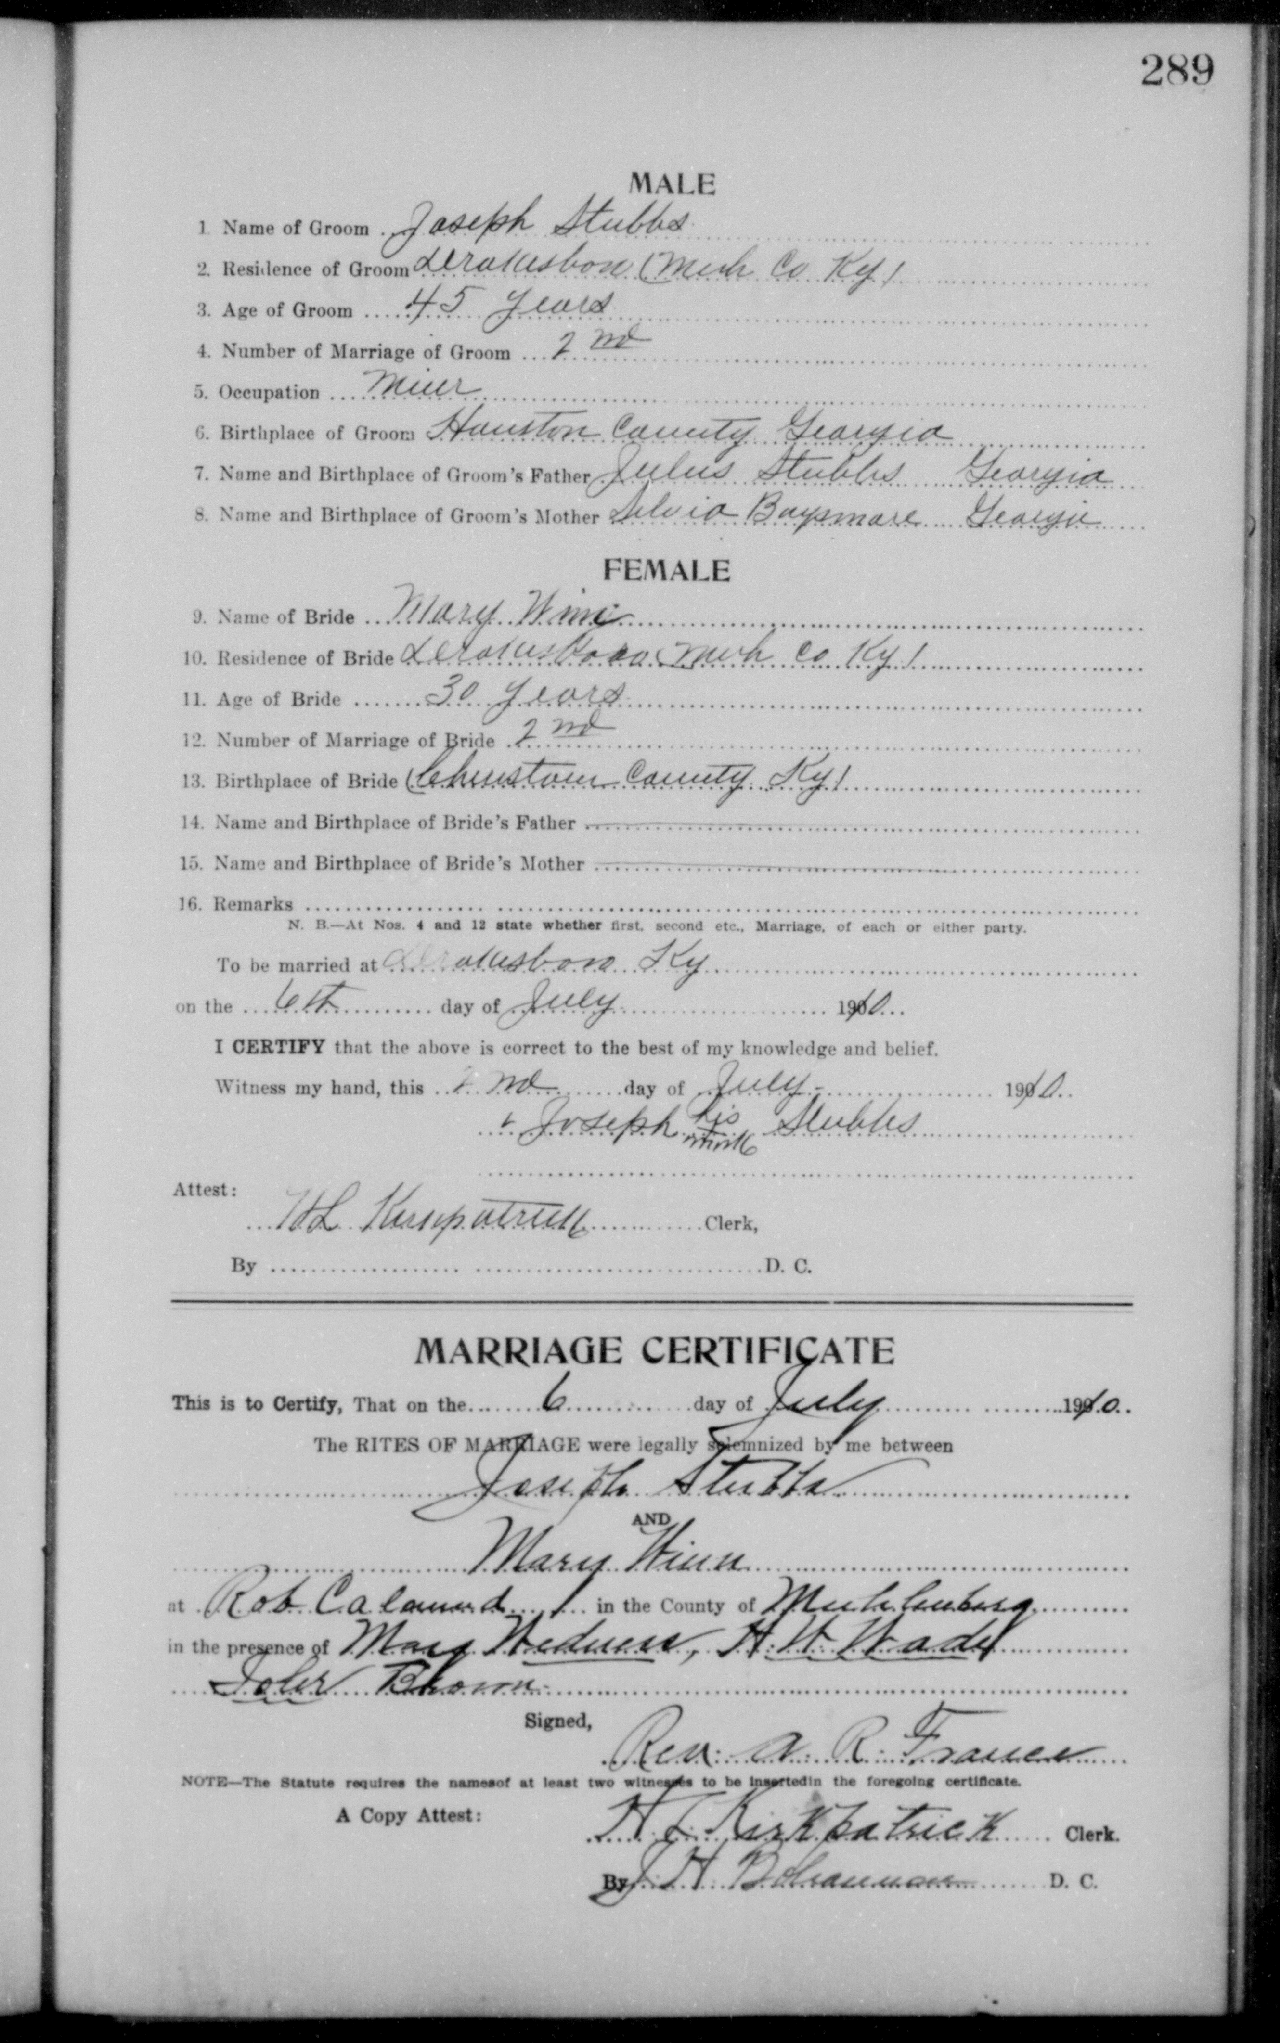 289
MALE
1 Name of Groom Joseph Stubbs
2. Residence of Groom Drakesboro (Muh Co Ky)
3. Age of Groom 45 years
4. Number of Marriage of Groom 2nd
5. Occupation Miner
6. Birthplace of Groom Houston County Georgia
7. Name and Birthplace of Groom's Father Julus Stubbs Georgia
8. Name and Birthplace of Groom's Mother Silvia Baysmore Georgia
FEMALE
9. Name of Bride Mary Winn
10. Residence of Bride Drakesboro (Muh Co Ky)
11. Age of Bride 30 years
12. Number of Marriage of Bride 2nd
13. Birthplace of Bride (Christian County Ky)
14. Name and Birthplace of Bride's Father
15. Name and Birthplace of Bride's Mother
16. Remarks
N. B.—At Nos. 4 and 12 state whether first, second etc., Marriage, of each or either party.
To be married at Drakesboro Ky
on the 6th day of July 1910
I CERTIFY that the above is correct to the best of my knowledge and belief.
Witness my hand, this 2nd day of July 1910
Joseph his mark Stubbs
Attest:
H L Kirkpatrick Clerk,
By D. C.
MARRIAGE CERTIFICATE
This is to Certify, That on the 6 day of July 1910
The RITES OF MARRIAGE were legally solemnized by me between
Joseph Stubbs
AND
Mary Winn
at Rob in the County of Muhlenberg
in the presence of Mary H. W. Wade
Brown
Signed,
Rev. A. R. France
NOTE—The Statute requires the namesof at least two witnesses to be insertedin the foregoing certificate.
A Copy Attest:
H L Kirkpatrick Clerk.
By J H Bohannon D. C.